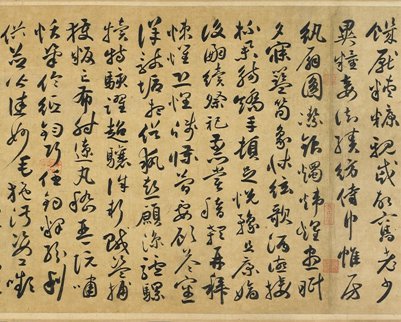 飢厭糟糠親戚故舊老少
異糧妾御績紡侍巾帷房
紈扇圓潔銀燭煒煌晝眠
夕寐藍笋象床絃歌酒讌接
杯舉觴矯手頓足悅豫且康嫡
後嗣續祭祀蒸嘗稽顙再拜
悚懼恐惶牋牒簡要顧答審
詳骸垢想浴執熱願涼驢騾
犢特駭躍超驤誅斬賊盜捕
獲叛亡布射遼丸嵇阮嘯
恬筆倫紙鈞巧任釣釋紛利
俗並皆佳妙毛施淑姿工嚬